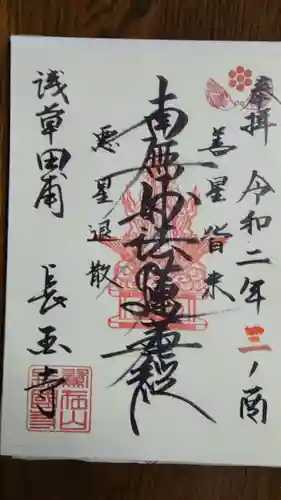 奉拝
令和二年三ノ酉
善星皆来
南無妙法蓮華経
悪星退散
浅草田甫
長国寺